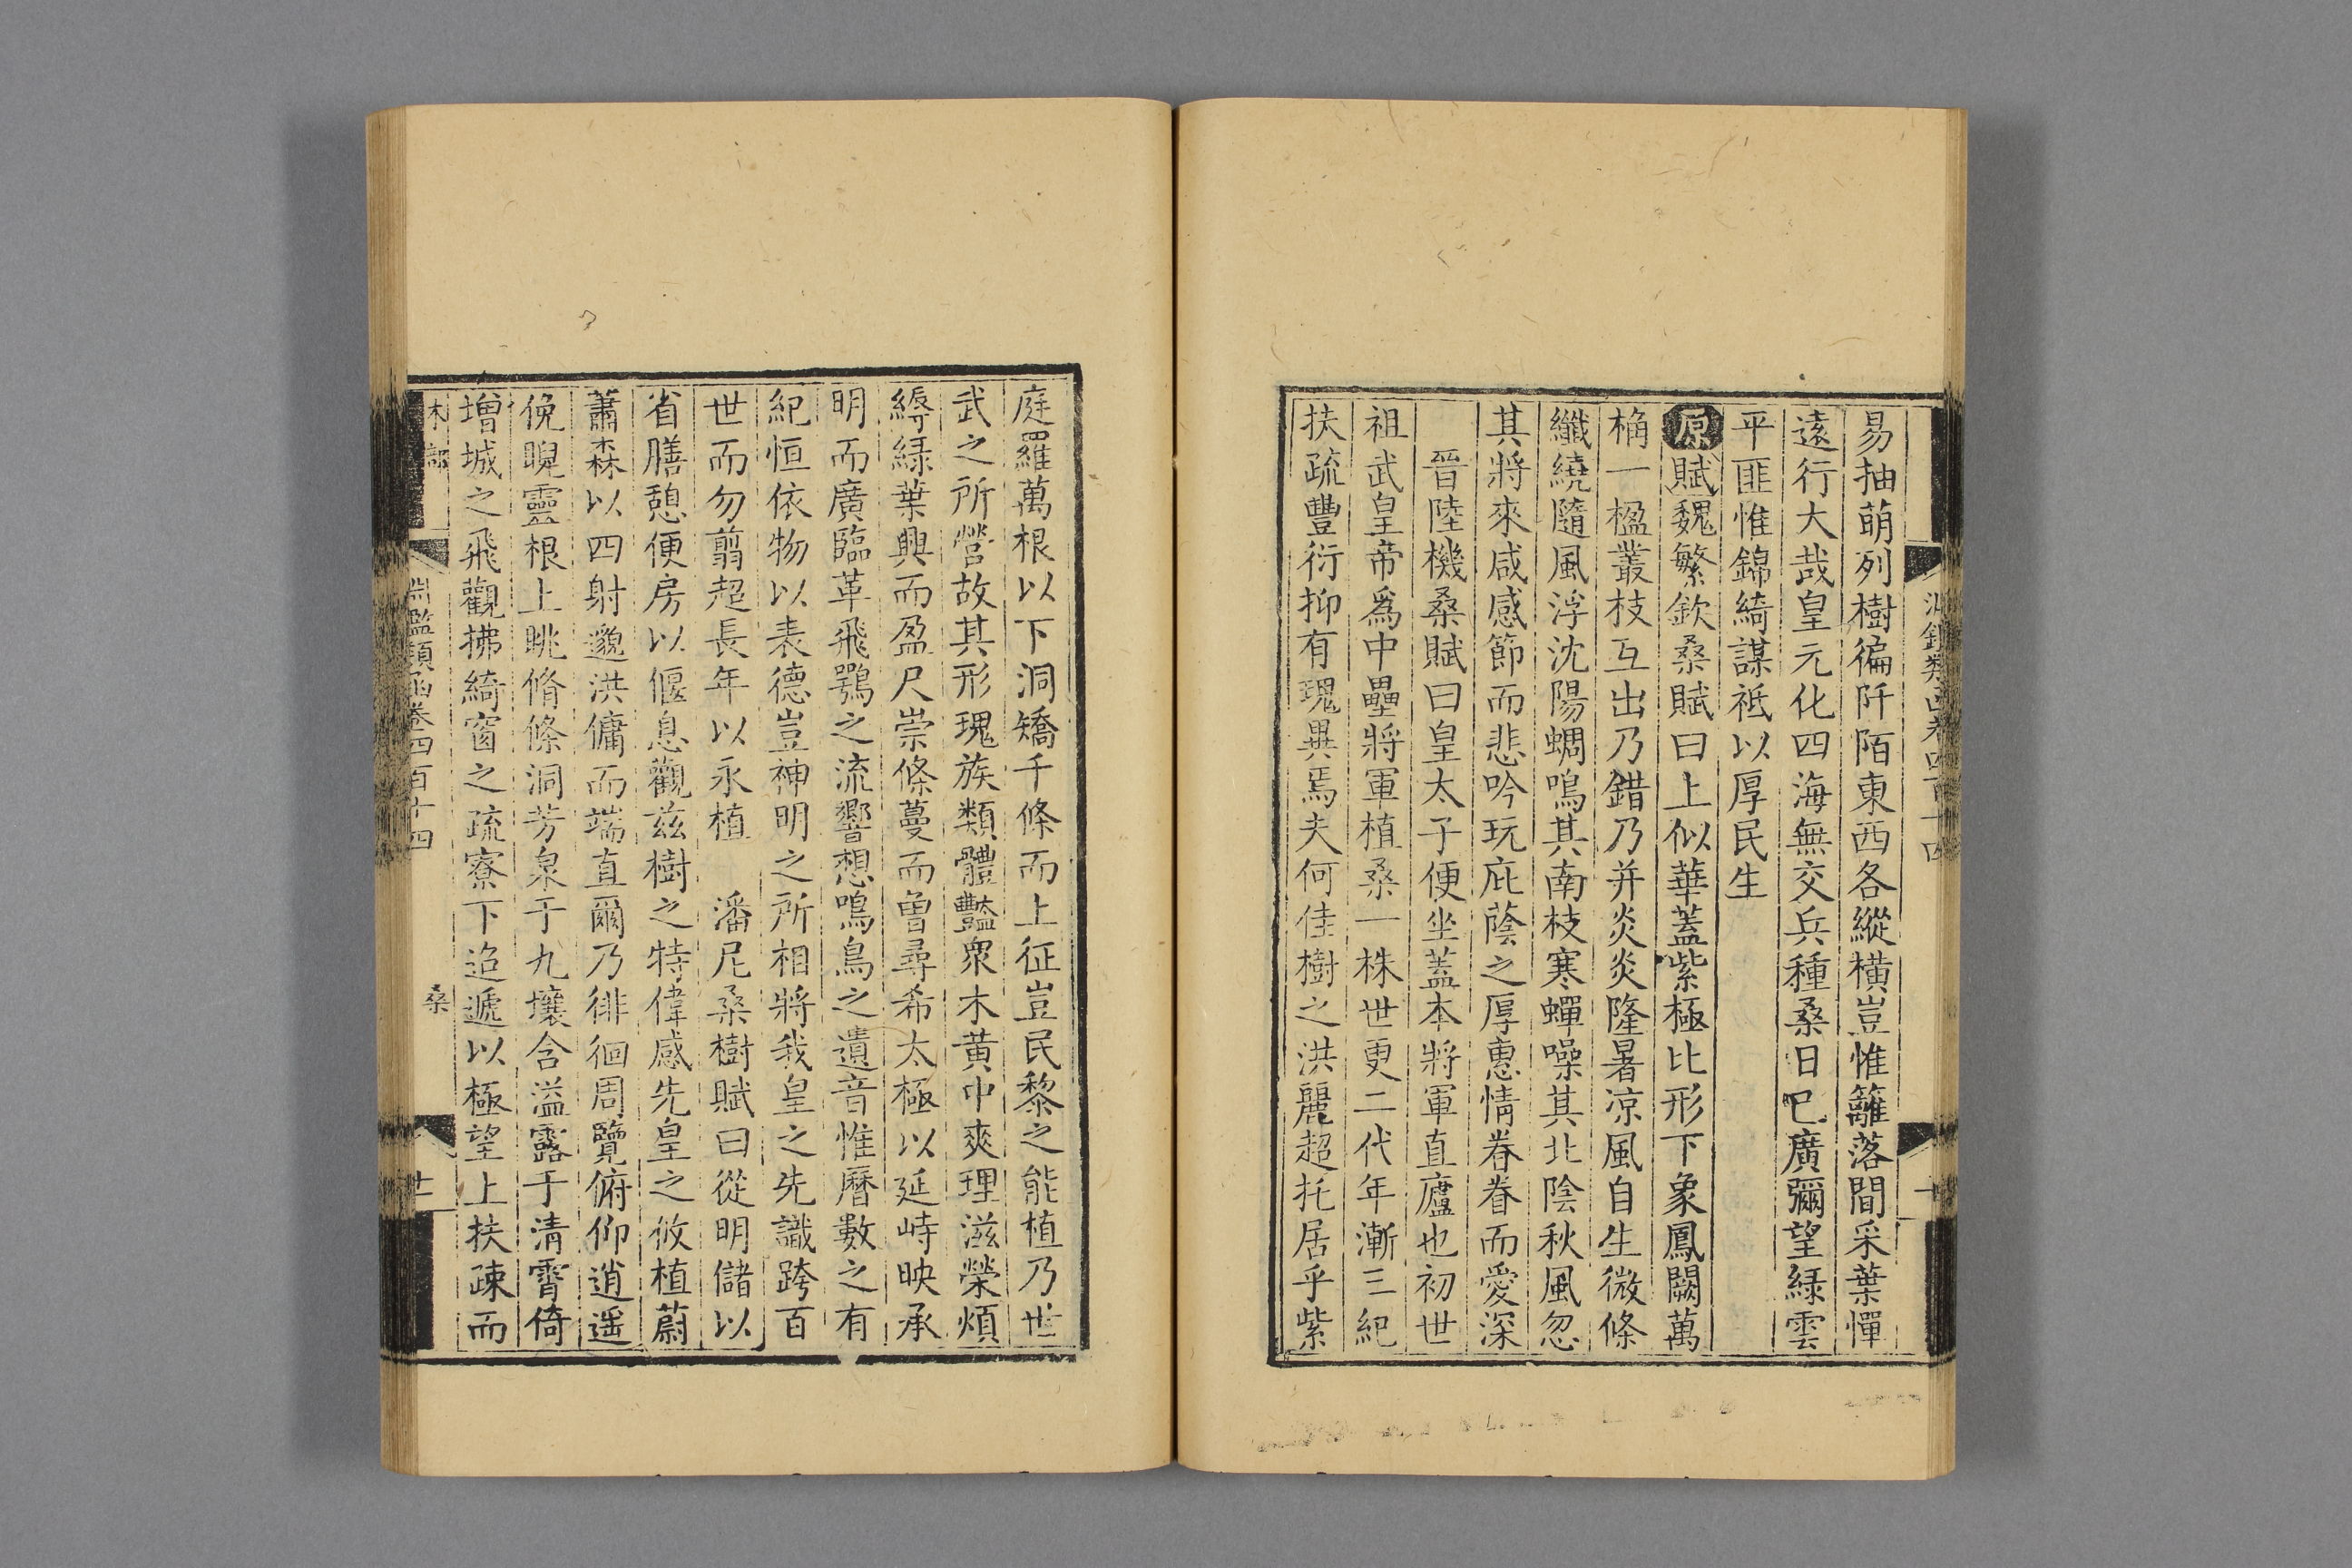 易抽萌列樹徧阡陌東西各縱橫豈惟籬落間采葉憚
遠行大哉皇元化四海無交兵種桑日已廣彌望緑雲
平匪惟錦綺謀祇以厚民生
原賦魏繁欽桑賦曰上似華蓋紫極比形下象鳳闕萬
桷一楹叢枝互出乃錯乃并炎炎隆暑凉風自生微條
纖繞隨風浮沈陽蜩鳴其南枝寒蟬噪其北陰秋風忽
其將來咸感節而悲吟玩庇蔭之厚惠情眷眷而愛深
晉陸機桑賦曰皇太子便坐蓋本將軍直廬也初世
祖武皇帝爲中壘將軍植桑一株世更二代年漸三紀
扶疏豐衍抑有瑰異焉夫何佳樹之洪麗超托居乎紫
庭羅萬根以下洞矯千條而上征豈民黎之能植乃世
武之所營故其形瑰族類體豔衆木黃中爽理滋榮煩
縟緑葉興而盈尺崇條蔓而曾尋希太極以延峙映承
明而廣臨革飛鶚之流響想鳴鳥之遺音惟曆數之有
紀恒依物以表德豈神明之所相將我皇之先識跨百
世而勿翦超長年以永植 潘尼桑樹賦曰從明儲以
省膳憩便房以偃息觀兹樹之特偉感先皇之攸植蔚
蕭森以四射邈洪傭而端直爾乃徘徊周覽俯仰逍遥
俛睨靈根上眺脩條洞芳泉于九壤含溢露于清霄倚
增城之飛觀拂綺窗之疏寮下迢遞以極望上扶疎而
木部 淵鑑類函卷四百十四 桑